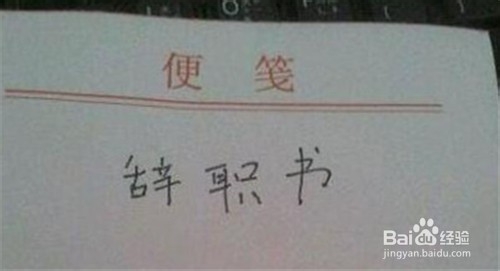 便 笺
辞职书
Baidu经验
jingyan.baidu.com